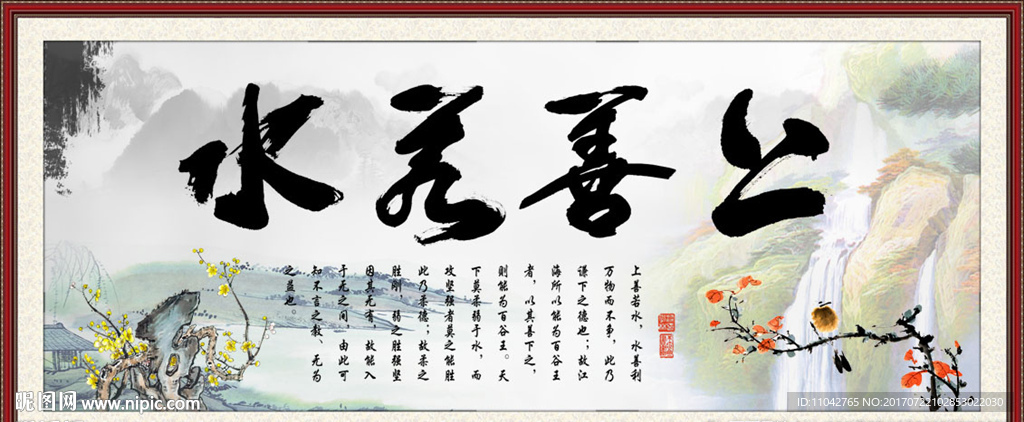 上善若水
上善若水，水善利
万物而不争，此乃
谦下之德也；故江
海所以能为百谷王
者，以其善下之，
则能为百谷王。天
下莫柔弱于水，而
攻坚强者莫之能胜
此乃柔德；故柔之
胜刚，弱之胜强坚
因其无有，故能入
于无之间，由此可
知不言之教、无为
之益也。
昵图网 www.nipic.com
ID:11042765 NO:20170722102853022030